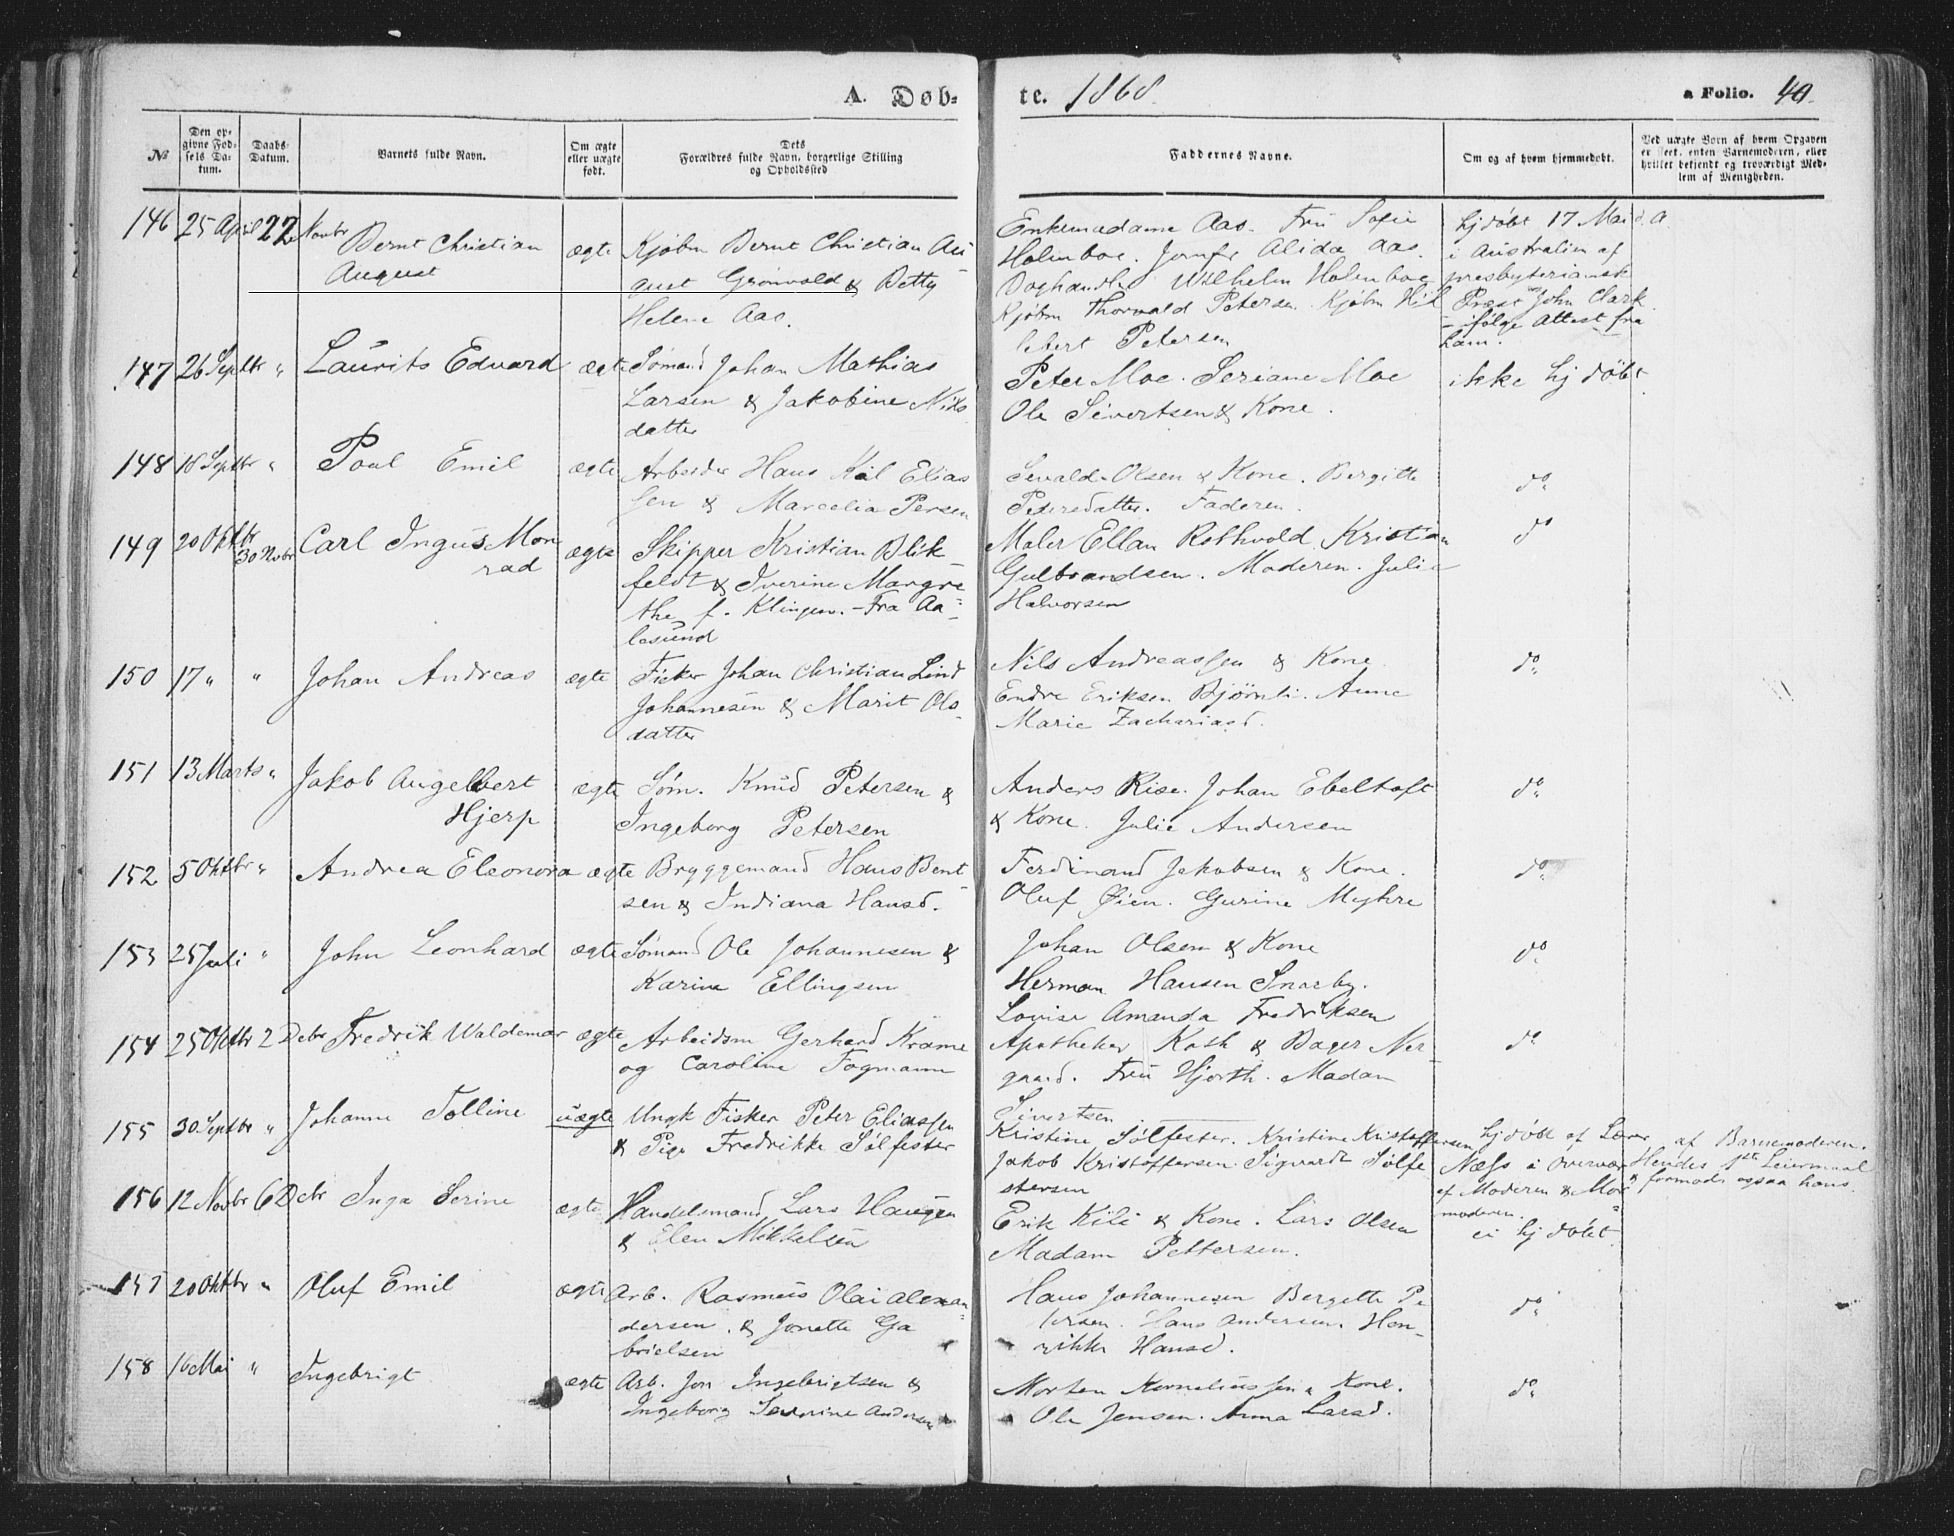 A. Døb=
te. 1868.
a Folio. 40.
№
Den op=
givne Fød=
sels Da=
tum.
Daabs=
Datum.
Barnets fulde Navn.
Om ægte
eller uægte
født.
Dets
Forældres fulde Navn, borgerlige Stilling
og Opholdssted
Faddernes Navne.
Om og af hvem hjemmedøbt.
Ved uægte Børn af hvem Opgaven
er skeet, enten Barnemoderen, eller
hvilket bekjendt og troværdigt Med=
lem af Menigheden.
146 25 April 22 Novbr Bernt Christian
August
ægte
Kjøbm Bernt Christian Au
gust Grønvold & Betty
Helene Aas.
Enkemadame Aas. Frü Sofie
Holmboe. Jomfr Alida Aas.
Boghandl. Wilhelm Holmboe
Kjøbm Thorvald Petersen Kjøbm Hil
lebert Petersen
hj døbt 17 Mai d. A
i Australien af
presbyteriansk
Præst John Clark
- ifølge Attest fra
ham.
147 26 Septbr " Laurits Edvard ægte
Sømand Johan Mathias
Larsen & Jakobine Nils
datter
Peter Moe. Seriane Moe
Ole Sivertsen & Kone.
ikke hj døbt
148 18 Septbr " Poul Emil ægte
Arbeider Hans Kil Elias
sen & Marcelia Persen
Sevald Olsen & Kone. Bergitte
Petersdatter. Faderen.
do
149 20 Oktbr 30 Nvbr Carl Ingus Mon
rad
ægte
Skipper Kristian Blik
feldt & Iverine Margre
the f. Klingen. - Fra Aa=
lesund
Maler Ellan Rothvold Kristian
Gulbrandsen. Moderen. Julie
Halvorsen
do
150 17 " " Johan Andreas ægte
Fisker Johan Christian Lind
Johannesen & Marit Ols
datter
Nils Andreassen & Kone.
Endre Eriksen Bjørnli. Anne
Marie Zachariasd.
do
151 13 Marts " Jakob Angelbert
Hjerp
ægte
Søm. Knud Petersen &
Ingeborg Petersen
Anders Rise. Johan Ebeltoft
& Kone. Julie Andersen
do
152 5 Oktbr " Andrea Eleonora ægte
Bryggemand Hans Bent
sen & Indiana Hansd.
Ferdinand Jakobsen & Kone.
Oluf Øien. Gurine Myhre
do
153 25 Juli " John Leonhard ægte
Sømand Ole Johannesen &
Karine Ellingsen
Johan Olsen & Kone
Herman Hansen Snarby.
Lovise Amanda Fredriksen
do
154 25 Oktbr 2 Debr Fredrik Waldemar ægte
Arbeidsm Gerhard Krame
og Caroline Fogmann
Apotheker Koth & Bager Ner=
gaard. Frü Hjorth. Madam
Sivertsen
do
155 30 Septbr " Johanne Tolline uægte
Ungk Fisker Peter Eliassen
& Pige Fredrikke Sølfester
Kristine Sølfester. Kristine Kristoffersen
Jakob Kristoffersen Sigvardt Sølfe
stersen
hj døbt af Lærer
Næss i Overvær
af Moderen & Mor=
moderen.
af Barnemoderen.
Hendes 1ste Leiermaal
& formods ogsaa hans.
156 12 Novbr 6 Dcbr Inga Serine ægte
Handelsmand Lars Haugen
& Elen Mikkelsen
Erik Kili & Kone. Lars Olsen
Madam Pettersen.
ei hj døbt
157 20 Oktbr " Oluf Emil ægte
Arb. Rasmus Olai Alexan=
dersen & Jonette Ga
brielsen
Hans Johannesen Bergette Pe
tersen. Hans Andersen. Hen=
rikke Hansd.
do
158 16 Mai " Ingebrigt ægte
Arb. Jon Ingebrigtsen &
Ingeborg Severine Andersen
Morten Korneliussen & Kone.
Ole Jensen. Anna Larsd.
do